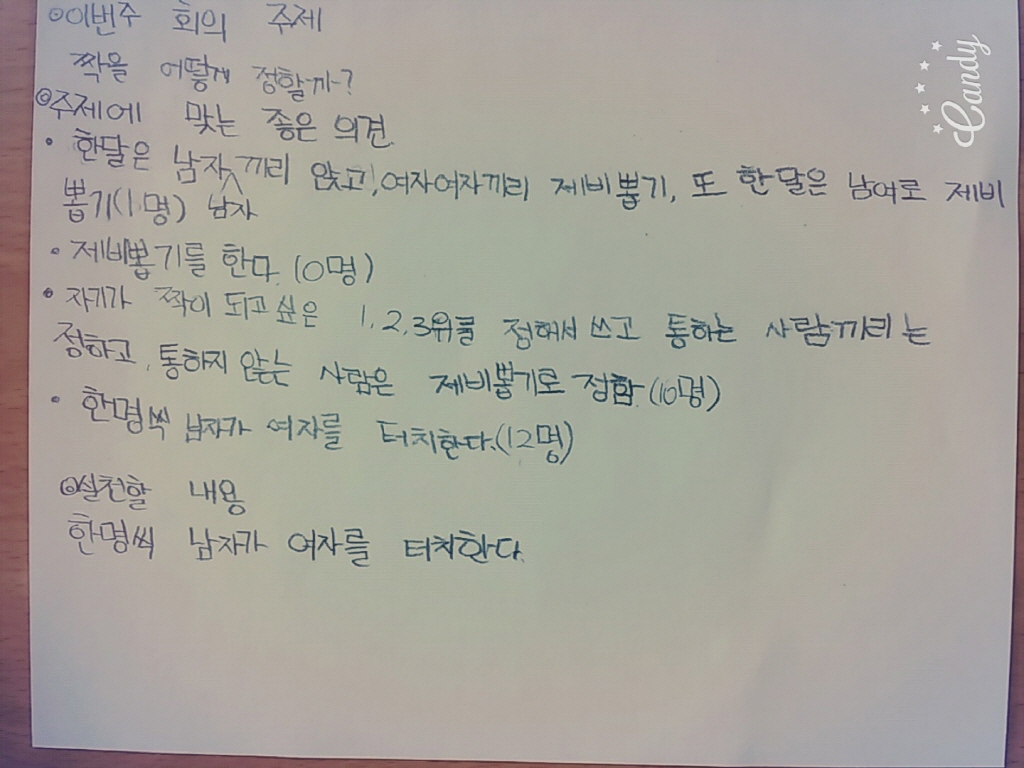 ◎이번주 회의 주제
짝을 어떻게 정할까?
◎주제에 맞는 좋은 의견
· 한달은 남자끼리 앉고, 여자여자끼리 제비뽑기, 또 한달은 남여로 제비
뽑기(1명) 남자
· 제비뽑기를 한다. (0명)
· 자기가 짝이 되고 싶은 1, 2, 3위를 정해서 쓰고 통하는 사람끼리는
정하고, 통하지 않는 사람은 제비뽑기로 정함. (10명)
· 한명씩 남자가 여자를 터치한다.(12명)
◎실천할 내용
한명씩 남자가 여자를 터치한다.
Candy